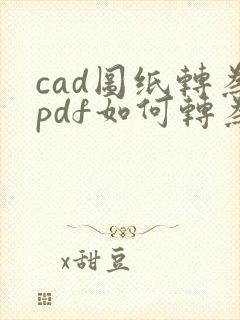 cad圖纸轉為
pdf如何轉為
x甜豆